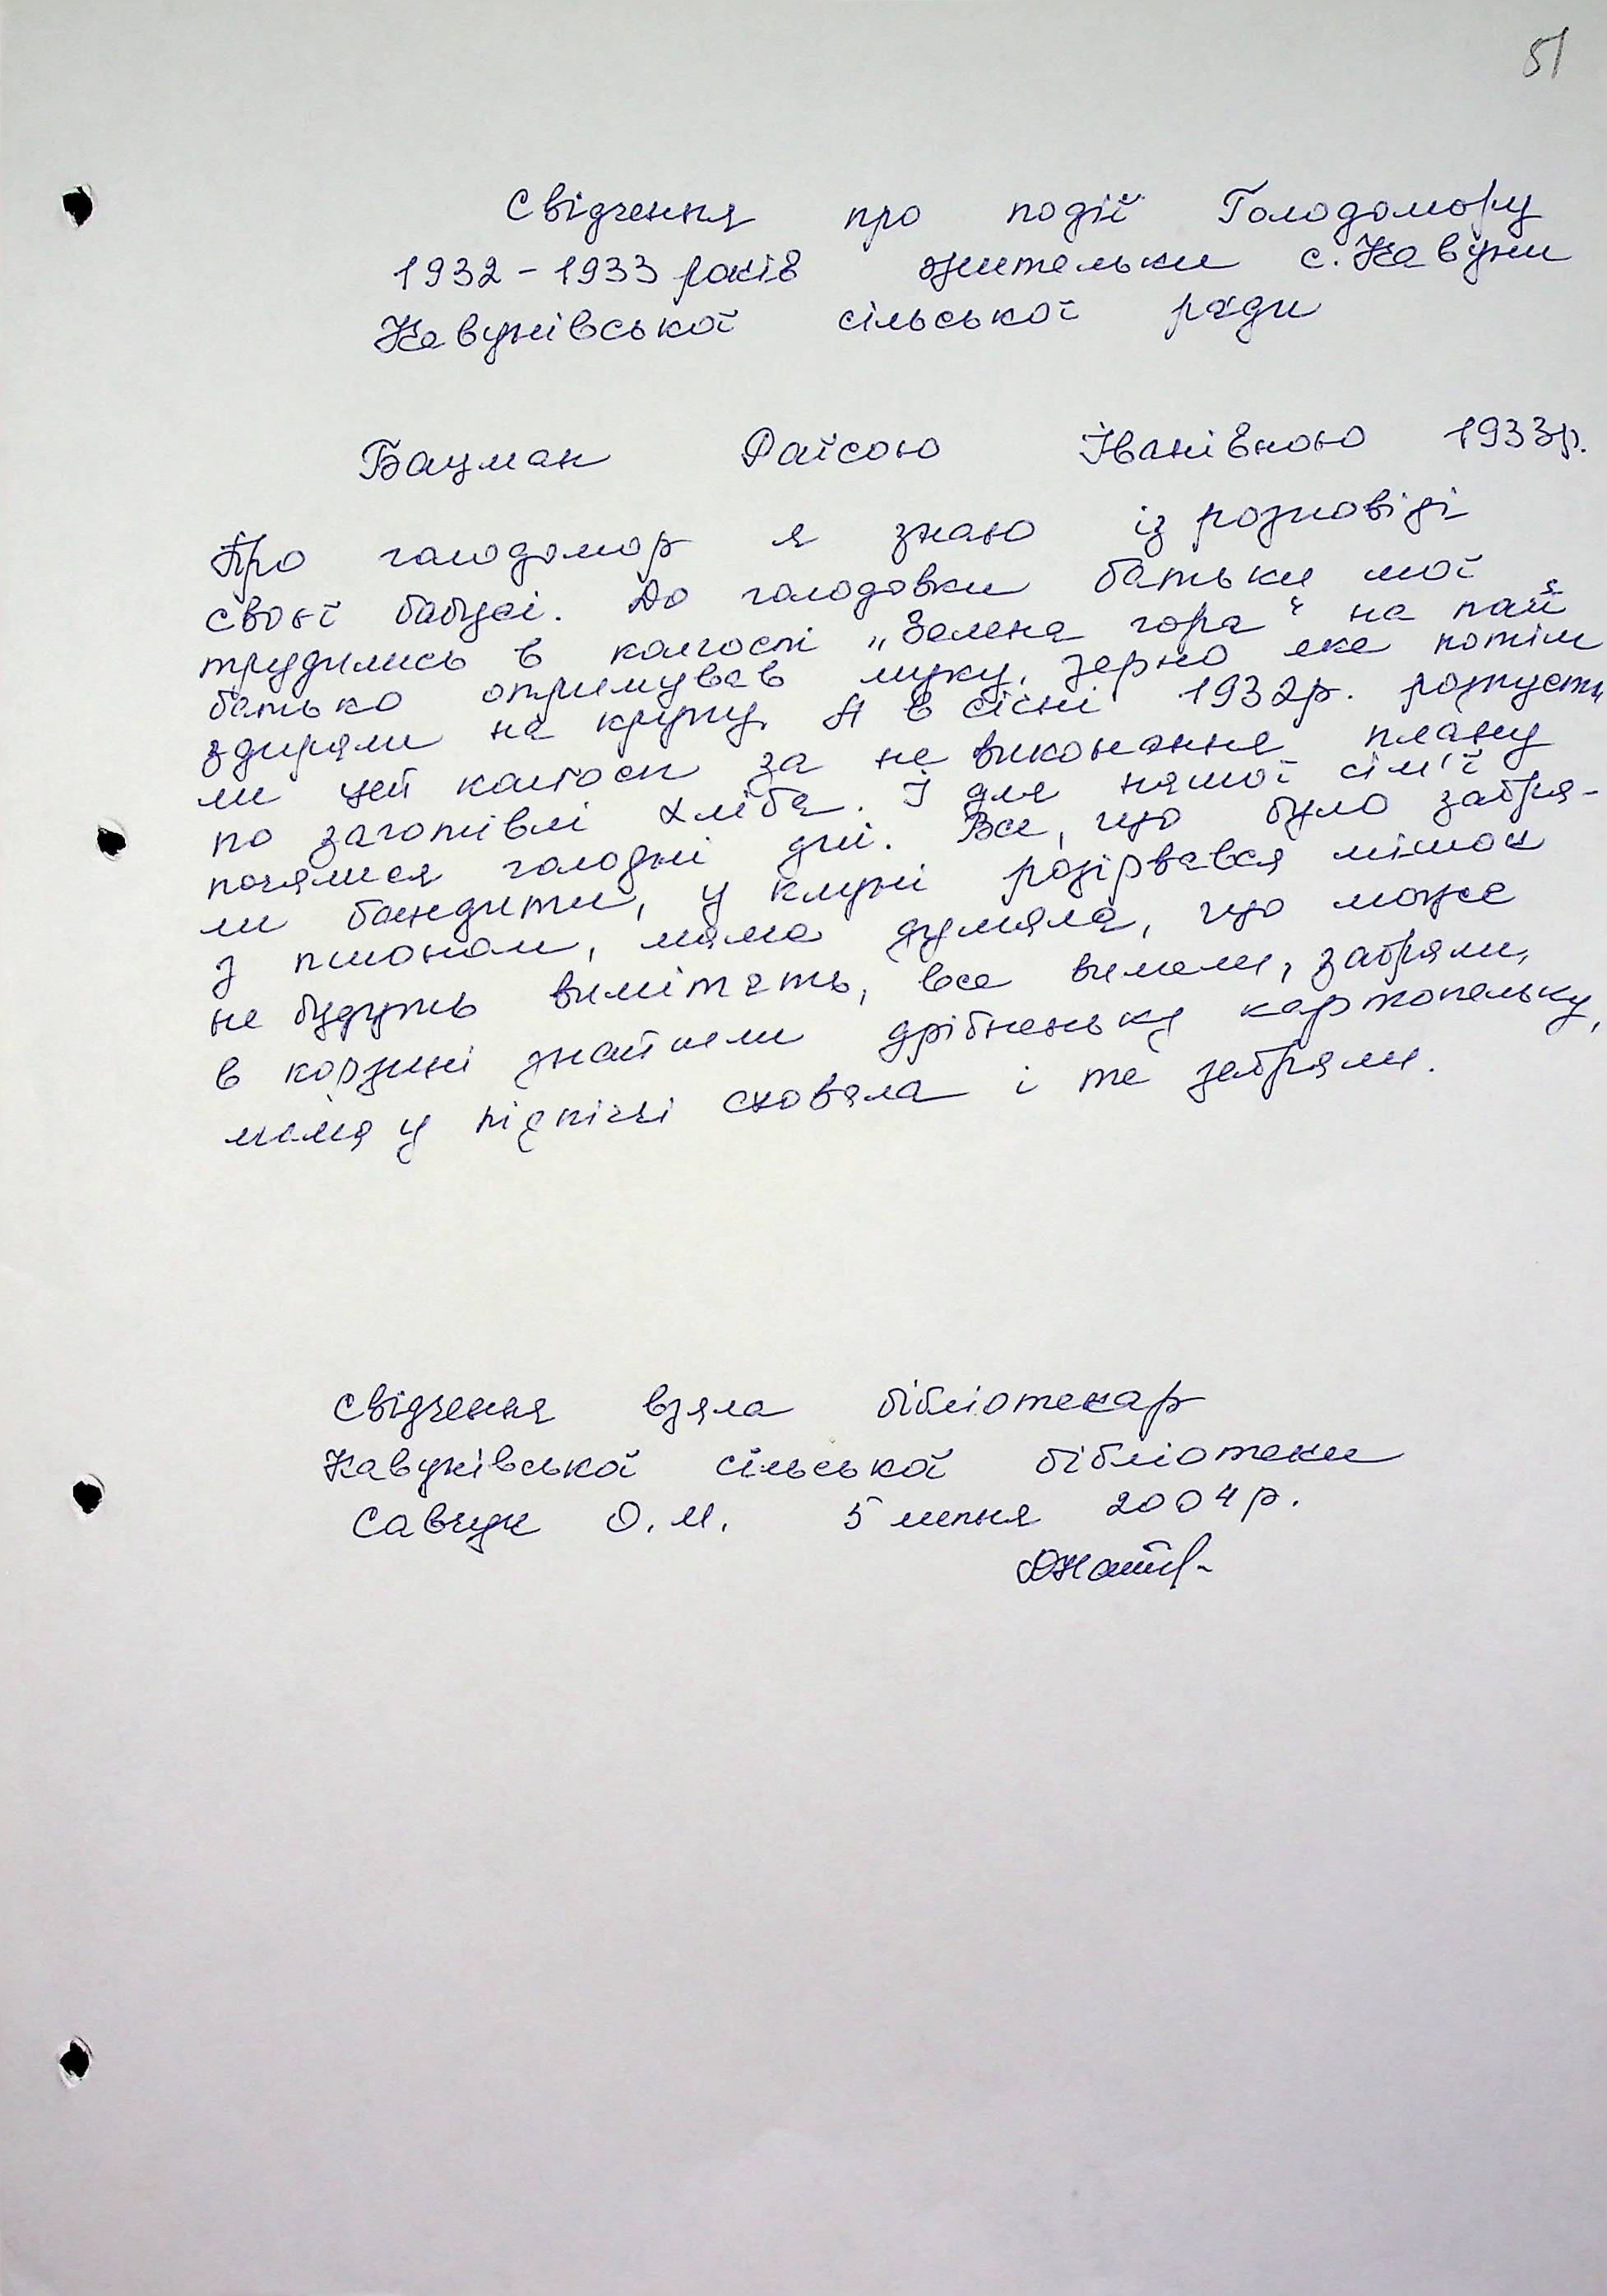 51
Свідчення про події Голодомору
1932-1933 років жительки с. Кавуни
Кавунівської сільської ради
Бауман Раїсою Іванівною 1933р.
Про голодомор я знаю із розповіді
своєї бабусі. До голодовки батьки мої
трудились в колгоспі „Зелена гора" на паї
батько отримував муку, зерно яке потім
здирали на крупу. А в січні 1932р. розпусти
ли цей колгосп за не виконання плану
по заготівлі хліба. І для нашої сім'ї
почалися голодні дні. Все, що було забра-
ли бандити, у клуні розірвався мішок
з пшоном, мама думала, що може
не будуть вимітать, все вимели, забрали,
в корзині знайшли дрібненьку картопельку,
мама у підпіччі сховала і те забрали.
Свідчення взяла бібліотекар
Кавунівської сільської бібліотеки
Савчук О.М. 5 липня 2004р.